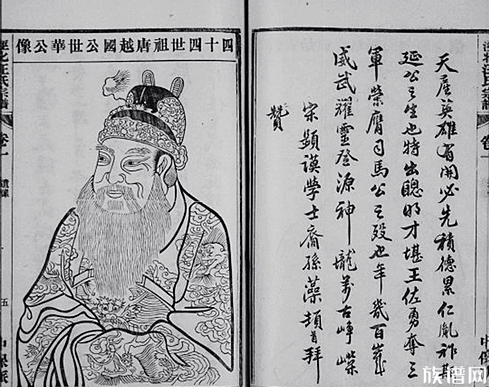 四十四世祖唐越國公世華公像
汪氏宗譜
卷一
五
天產英雄有開必先積德累仁胤祚
延公之生也特出聰明才堪王佐勇奪三
軍榮膺司馬公之歿也年幾百歲
威武耀靈登源神壠萬古崢嶸
宋顯謨學士裔孫藻頓首拜
贊
族谱网